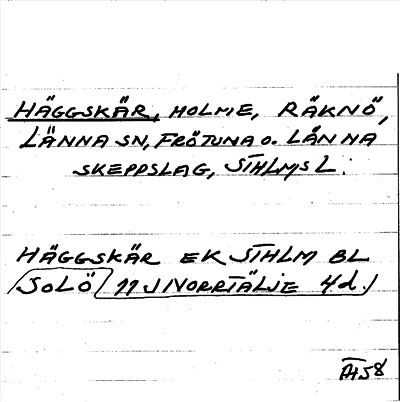 HÄGGSKÄR, HOLME, RÄKNÖ,
LÄNNA SN, FRÖTUNA O. LÄNNA
SKEPPSLAG, STHLMS L.
HÄGGSKÄR EK STHLM BL
SOLÖ 11J NORRTÄLJE 4d.
58